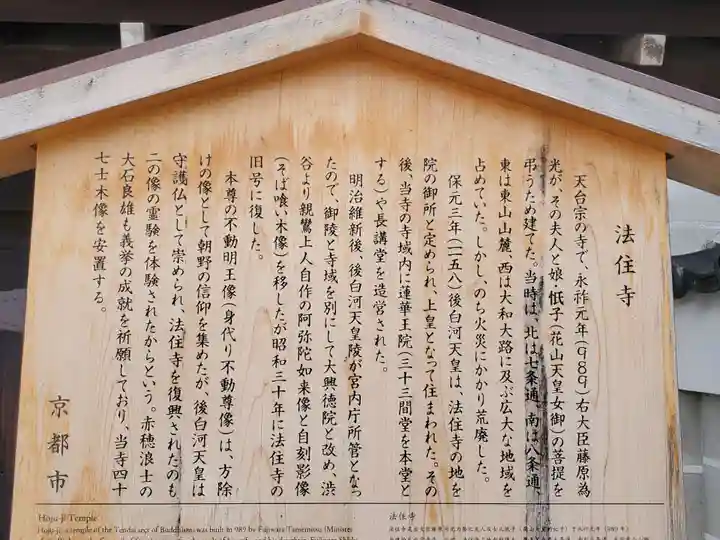 法住寺
天台宗の寺で、永祚元年(989)右大臣藤原為
光が、その夫人と娘・忯子(花山天皇女御)の菩提を
弔うため建てた。当時は、北は七条通、南は八条通、
東は東山山麓、西は大和大路に及ぶ広大な地域を
占めていた。しかし、のち火災にかかり荒廃した。
保元三年(一一五八)後白河天皇は、法住寺の地を
院の御所と定められ、上皇となって住まわれた。その
後、当寺の寺域内に蓮華王院(三十三間堂を本堂と
する)や長講堂を造営された。
明治維新後、後白河天皇陵が宮内庁所管となっ
たので、御陵と寺域を別にして大興徳院と改め、渋
谷より親鸞上人自作の阿弥陀如来像と自刻影像
(そば喰い木像)を移したが昭和三十年に法住寺の
旧号に復した。
本尊の不動明王像(身代り不動尊像)は、方除
けの像として朝野の信仰を集めたが、後白河天皇は
守護仏として崇められ、法住寺を復興されたのも
この像の霊験を体験されたからという。赤穂浪士の
大石良雄も義挙の成就を祈願しており、当寺四十
七士木像を安置する。
京都市
Hoju-ji Temple
Hoju-ji, a temple of the Tendai sect of Buddhism, was built in 989 by Fujiwara Tamemitsu (Minister
法住寺